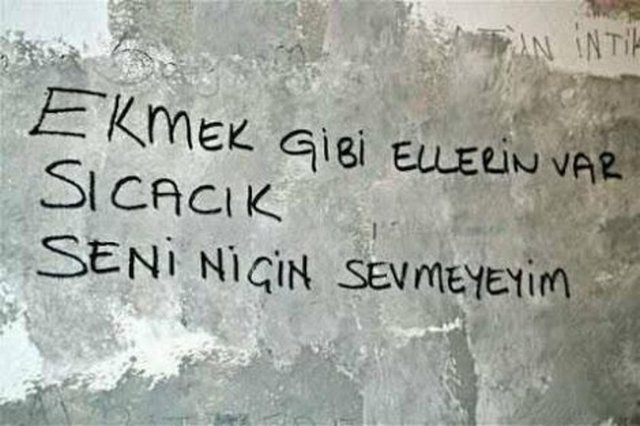 TÜN İNTİK
EKMEK GİBİ ELLERİN VAR
SICACIK
SENİ NİÇİN SEVMEYEYİM